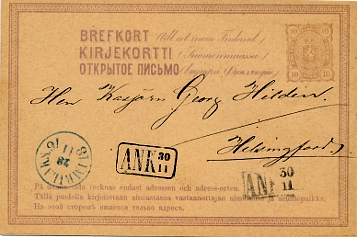 BREFKORT (till ort inom Finland)
KIRJEKORTTI (Suomenmaassa)
ОТКРЫТОЕ ПИСЬМО
10 10
10 10
Herr Georg
Helsingfors
28 11
ANK 30 11
ANK 30 11
På denna sida tecknas endast adressen och adress-orten.
Tällä puolella kirjoitetaan ainoastansa vastaanottajan nimi ja asuinpaikka.
На этой сторонѣ пишется только адресъ.